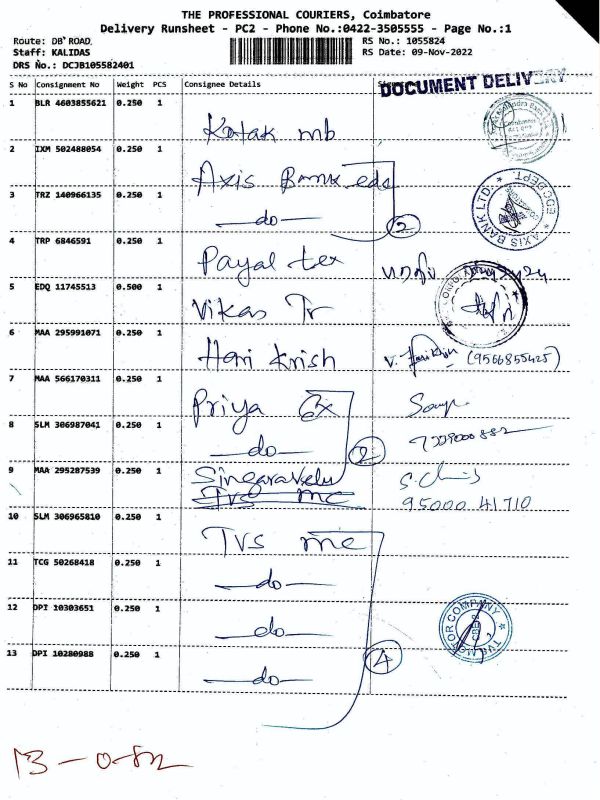 THE PROFESSIONAL COURIERS, Coimbatore
Delivery Runsheet - PC2 - Phone No.:0422-3505555 - Page No.:1
Route: DB' ROAD, RS No.: 1055824
Staff: KALIDAS RS Date: 09-Nov-2022
DRS No.: DCJB105582401
S No Consignment No Weight PCS Consignee Details
DOCUMENT DELIVERY
1 BLR 4603855621 0.250 1 Kotak mb
2 IXM 502488054 0.250 1 Axis Bank eds
AXIS BANK LTD. * EDC DEPT. *
3 TRZ 140966135 0.250 1 —do— 2
4 TRP 6846591 0.250 1 Payal tex
5 EDQ 11745513 0.500 1 Vikas Tr
6 MAA 295991071 0.250 1 Hari Krish V. Hari Krish (9566855425)
7 MAA 566170311 0.250 1 Priya Ex
8 SLM 306987041 0.250 1 —do— 2
9 MAA 295287539 0.250 1 Singaravelu
TVS mc 95000 41710
10 SLM 306965810 0.250 1 TVS mc
11 TCG 50268418 0.250 1 —do—
12 DPI 10303651 0.250 1 —do—
TVS MOTOR COMPANY
13 DPI 10280988 0.250 1 —do— 4
13 – 0 – 82